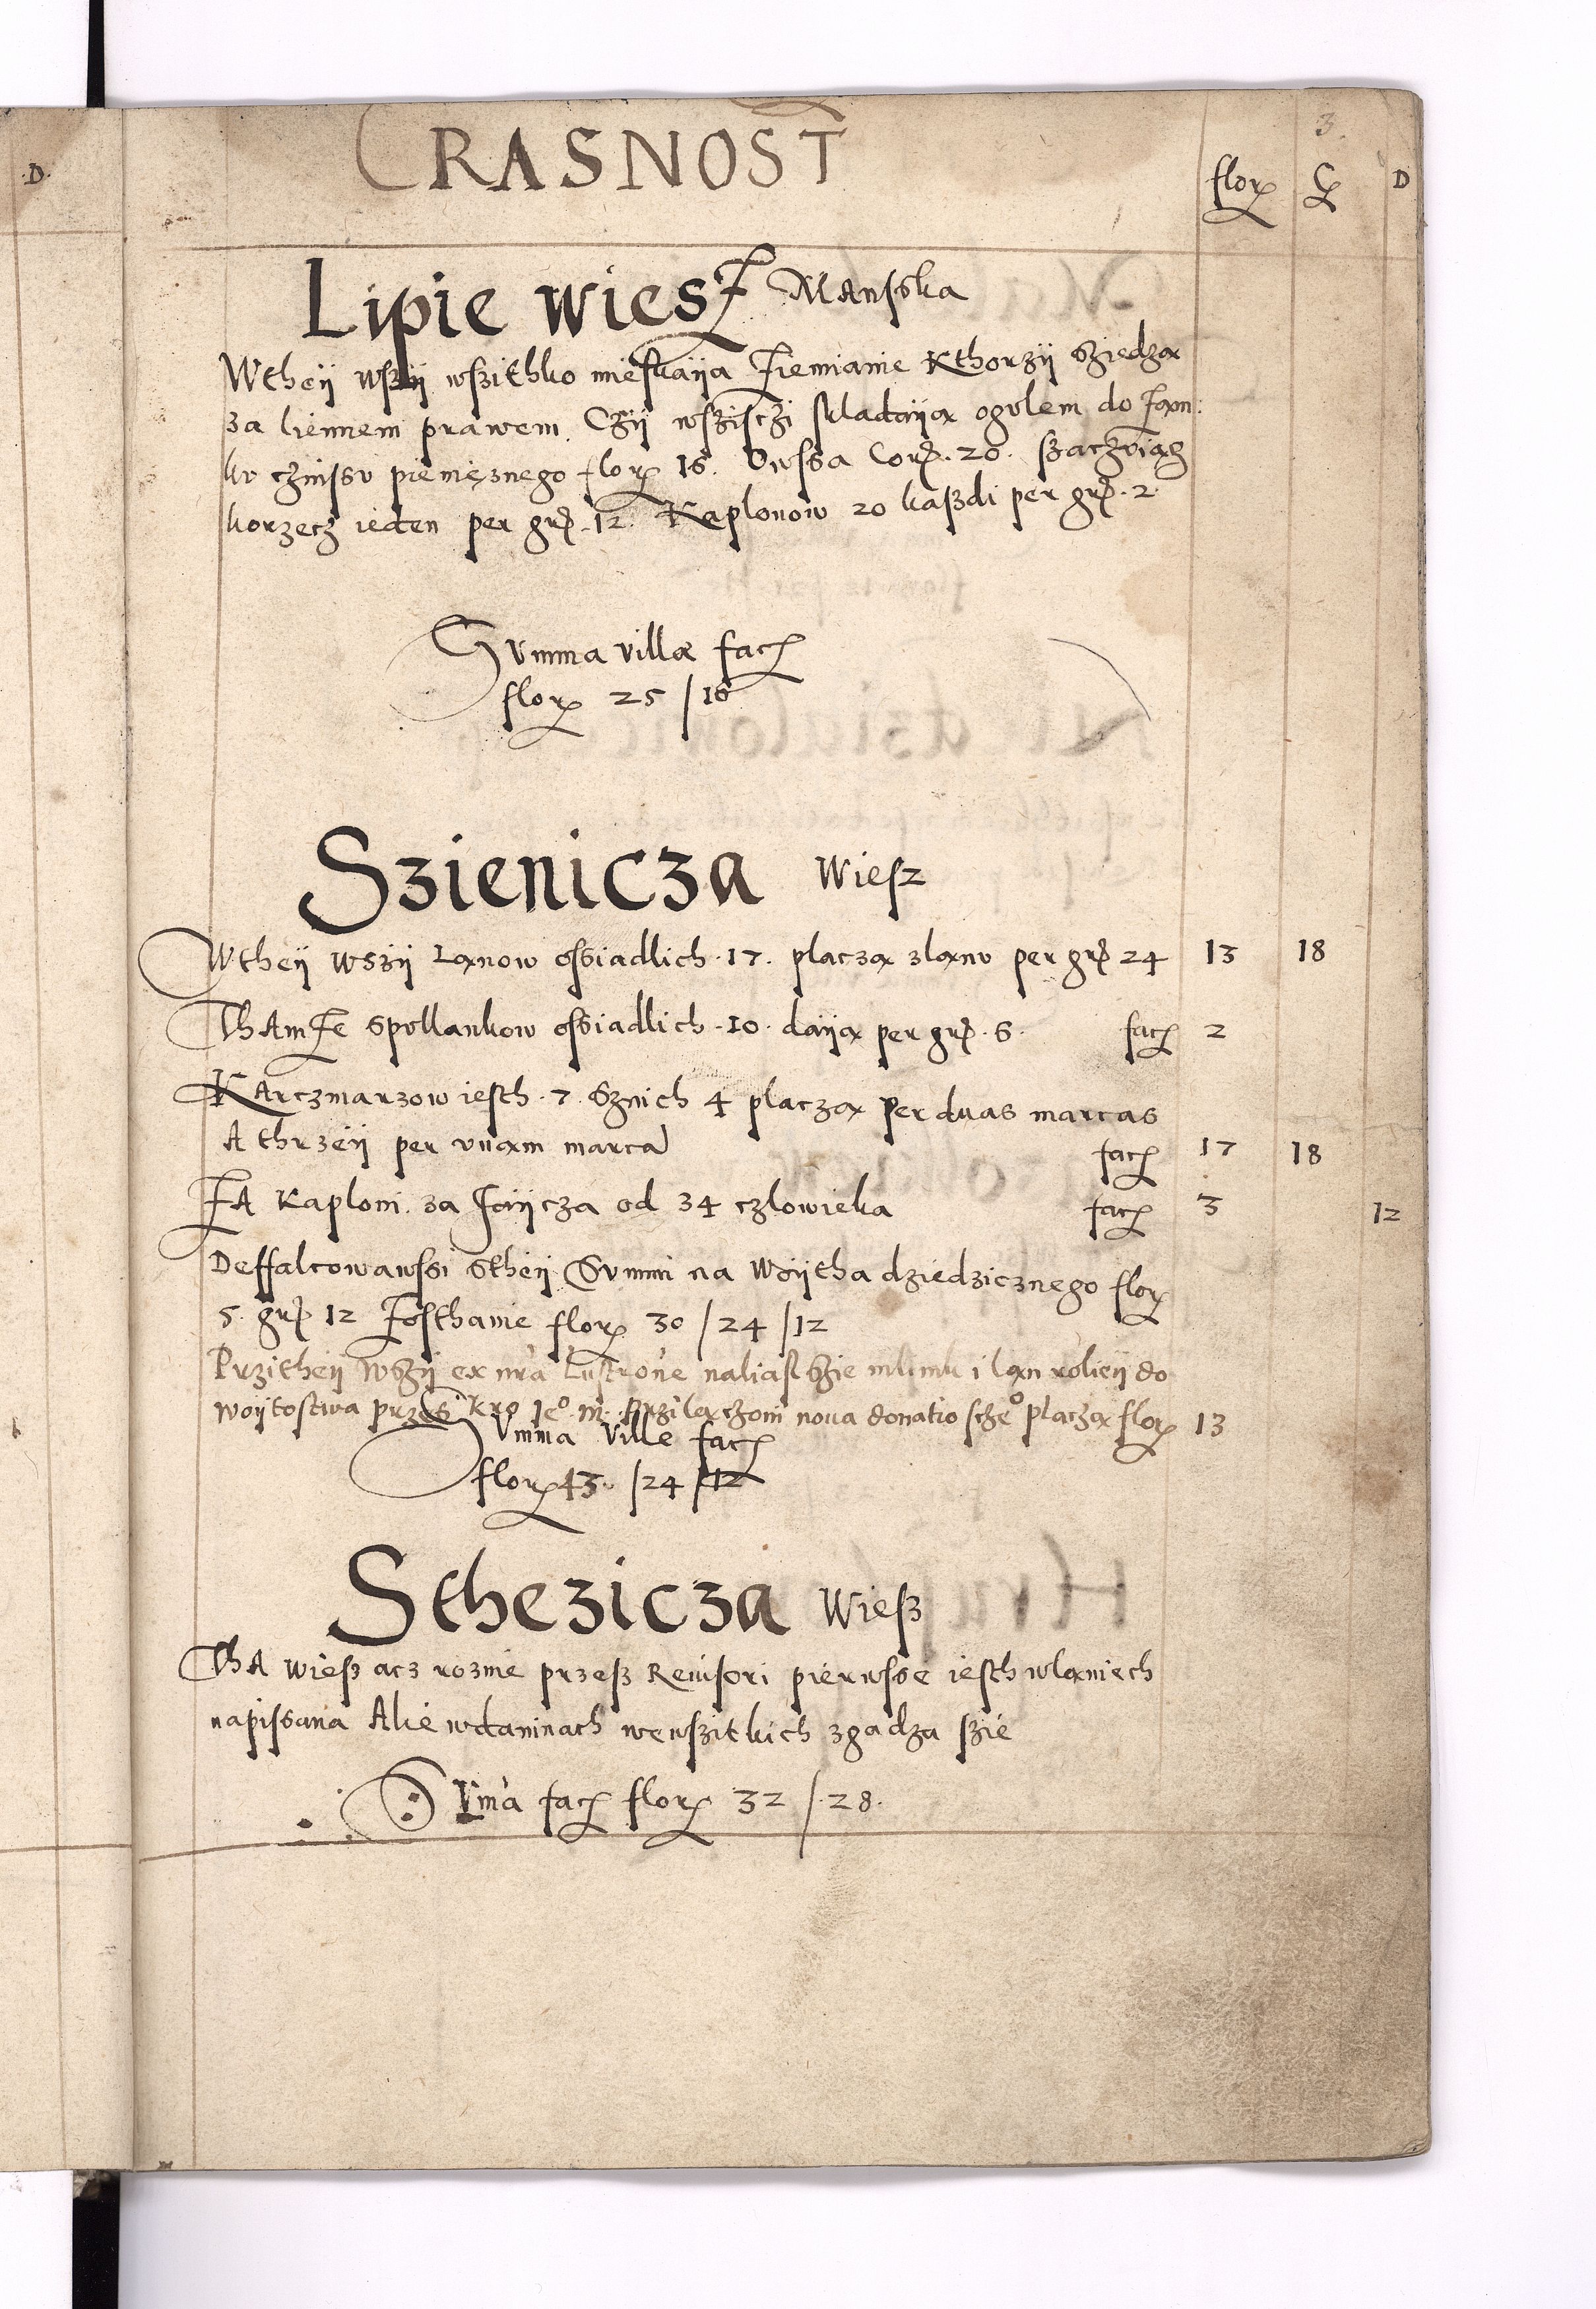 3.
CRASNOST
flor G D
D.
Lipie wiesz Manska
Wtheÿ wszÿ wszithko mieskaÿa Ziemianie Kthorzÿ Sziedzą
za liennem prawem. Czÿ wszisczi skladaÿą ogolem do Zam:
ku czinssv pieniężnego flor 16. Owssa Cor. 20. szaczviącz
korzecz ieden per gr. 12. Kaplonow 20 kaszdi per gr. 2
Svmma villæ fac
flor 25 / 16
Szienicza Wiesz
Wtheÿ wszÿ Lanow ossiadlich. 17. placzą złanv per gr 24 13 18
Thamze Spvllankow ossiadlich. 10. daÿą per gr. 6. fac 2
Karczmarzow iesth. 7. Sznich 4 placzą Per duas marcas
A thrzeÿ per vnam marca fac 17 18
Za Kaploni. za Jaÿcza od 34 czlowieka fac 3 12
Deffalcowawssi Stheÿ Svmmi na Woÿtha dziedzicznego flor
5. gr 12 Zosthanie flor 30 / 24 / 12
Przitheÿ Wszÿ ex nra Lustrone naliasl szie mlinik i lan rolieÿ do
woÿtostwa przes Kro Je° m. Przilączoni nova donatio sche° placzą flor 13
Svmma Ville fac
flor 43. / 24 / 12
Sthezicza Wiesz
Tha wiesz acz roznie przesz Revisori pierwsse iesth wlaniech
napissana Alie wdaninach wewszitkich zgadza szie
Sv̄ma fac flor 32 / 28.